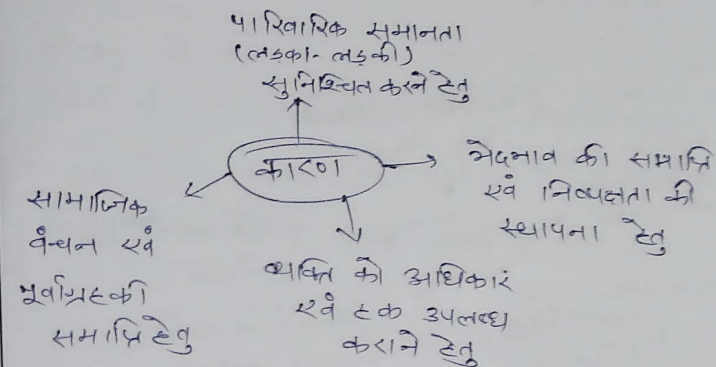 पारिवारिक समानता
(लड़का-लड़की)
सुनिश्चित करने हेतु
कारण
भेदभाव की समाप्ति
एवं निष्पक्षता की
स्थापना हेतु
सामाजिक
वंचन एवं
पूर्वाग्रह की
समाप्ति हेतु
व्यक्ति को अधिकार
एवं हक उपलब्ध
कराने हेतु